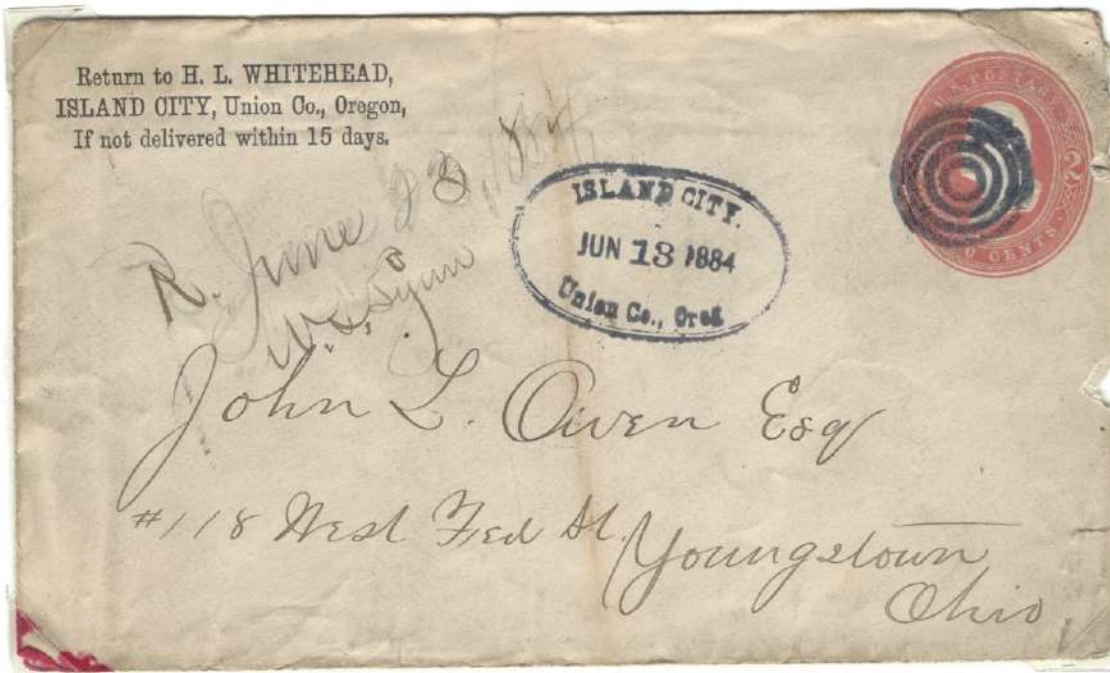 Return to H. L. WHITEHEAD,
ISLAND CITY, Union Co., Oregon,
If not delivered within 15 days.
U.S. POSTAGE
2
TWO CENTS
ISLAND CITY.
JUN 13 1884
Union Co., Oreg
R. June 23, 1884
John L. Owen Esq
#118 West Fed St.
Youngstown
Ohio